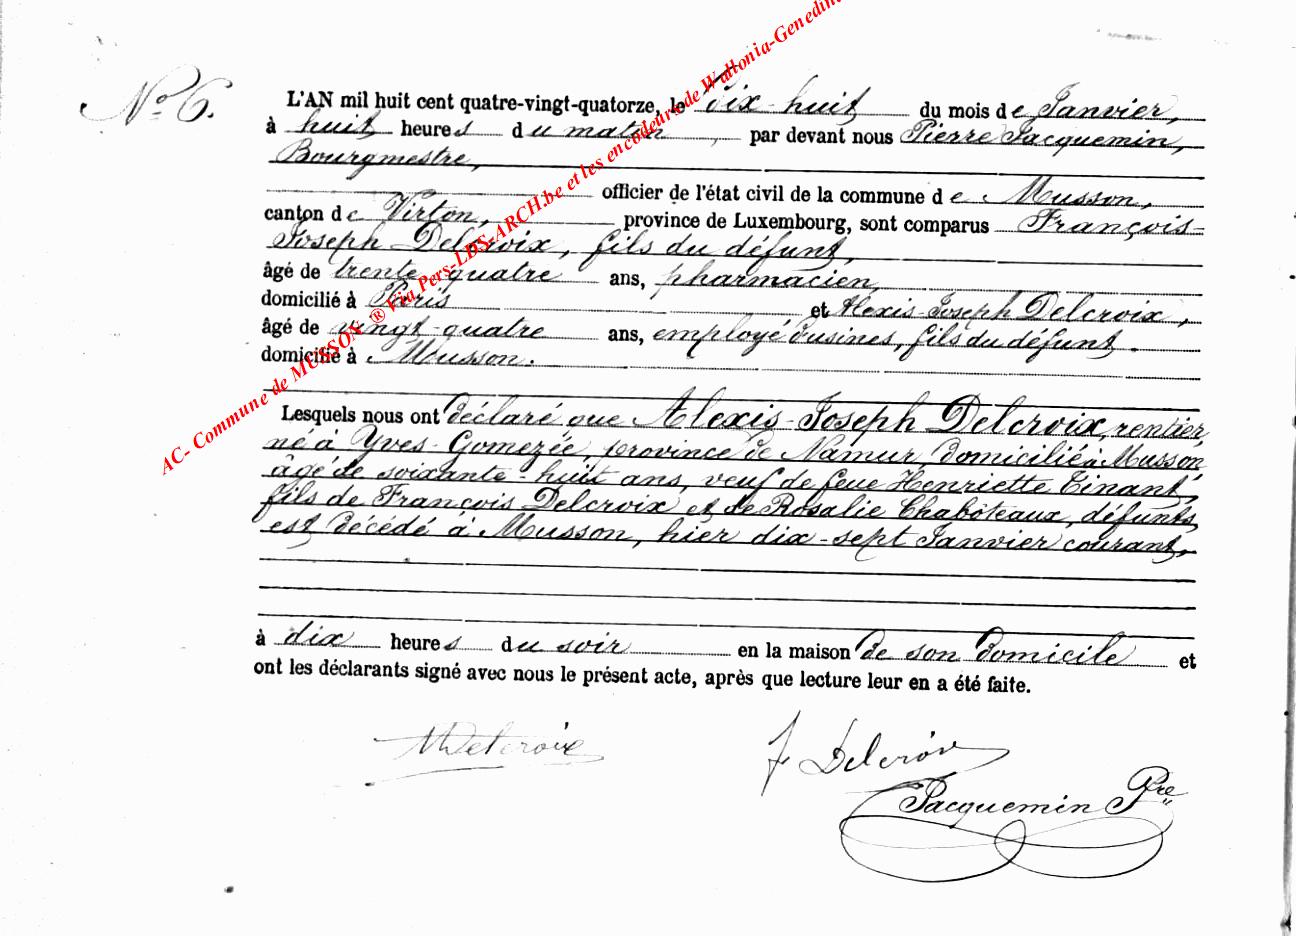 N° 6.
L'AN mil huit cent quatre-vingt-quatorze, le dix-huit du mois de Janvier,
à huit heures du matin, par devant nous Pierre Jacquemin,
Bourgmestre,
officier de l'état civil de la commune de Musson,
canton de Virton, province de Luxembourg, sont comparus François-
Joseph Delcroix, fils du défunt,
âgé de trente-quatre ans, pharmacien,
domicilié à Paris et Alexis-Joseph Delcroix,
âgé de vingt-quatre ans, employé d'usines, fils du défunt.
domicilié à Musson.
Lesquels nous ont déclaré que Alexis-Joseph Delcroix, rentier,
né à Yves-Gomezée, province de Namur, domicilié à Musson
âgé de soixante-huit ans, veuf de feue Henriette Tinant,
fils de François Delcroix et de Rosalie Chaboteaux, défunts
est décédé à Musson, hier dix-sept Janvier courant,
à dix heures du soir en la maison de son domicile et
ont les déclarants signé avec nous le présent acte, après que lecture leur en a été faite.
ADelcroix
J. Delcroix
Jacquemin Pre
AC- Commune de MUSSON ® Via Pers-LDS-ARCH.be et les encodeurs de Wallonia-Genedin